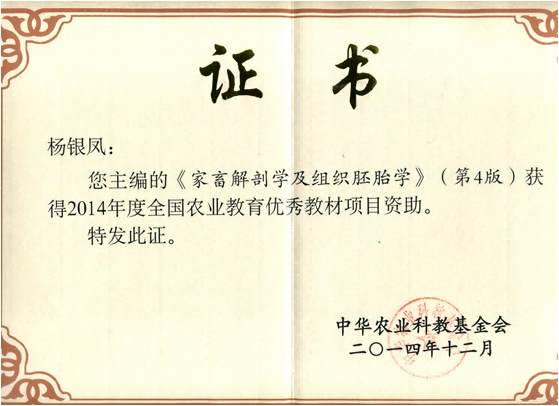 证书
杨银凤：
您主编的《家畜解剖学及组织胚胎学》（第4版）获
得2014年度全国农业教育优秀教材项目资助。
特发此证。
中华农业科教基金会
二〇一四年十二月